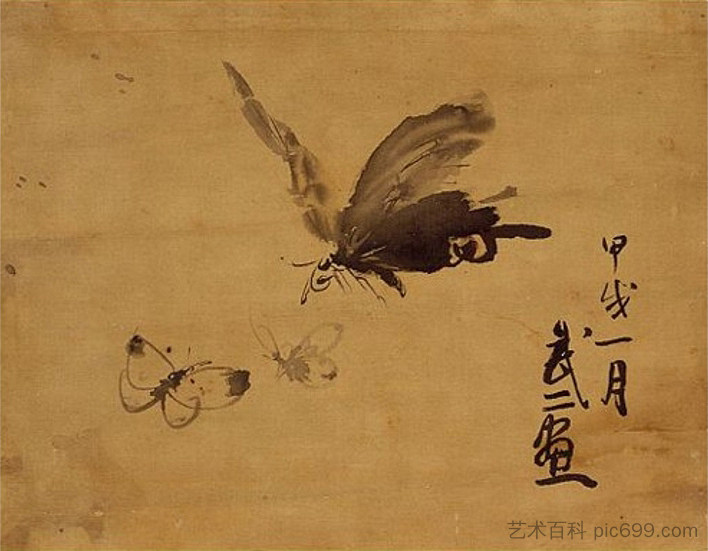 甲戌一月
武二画
艺术百科 pic699.com